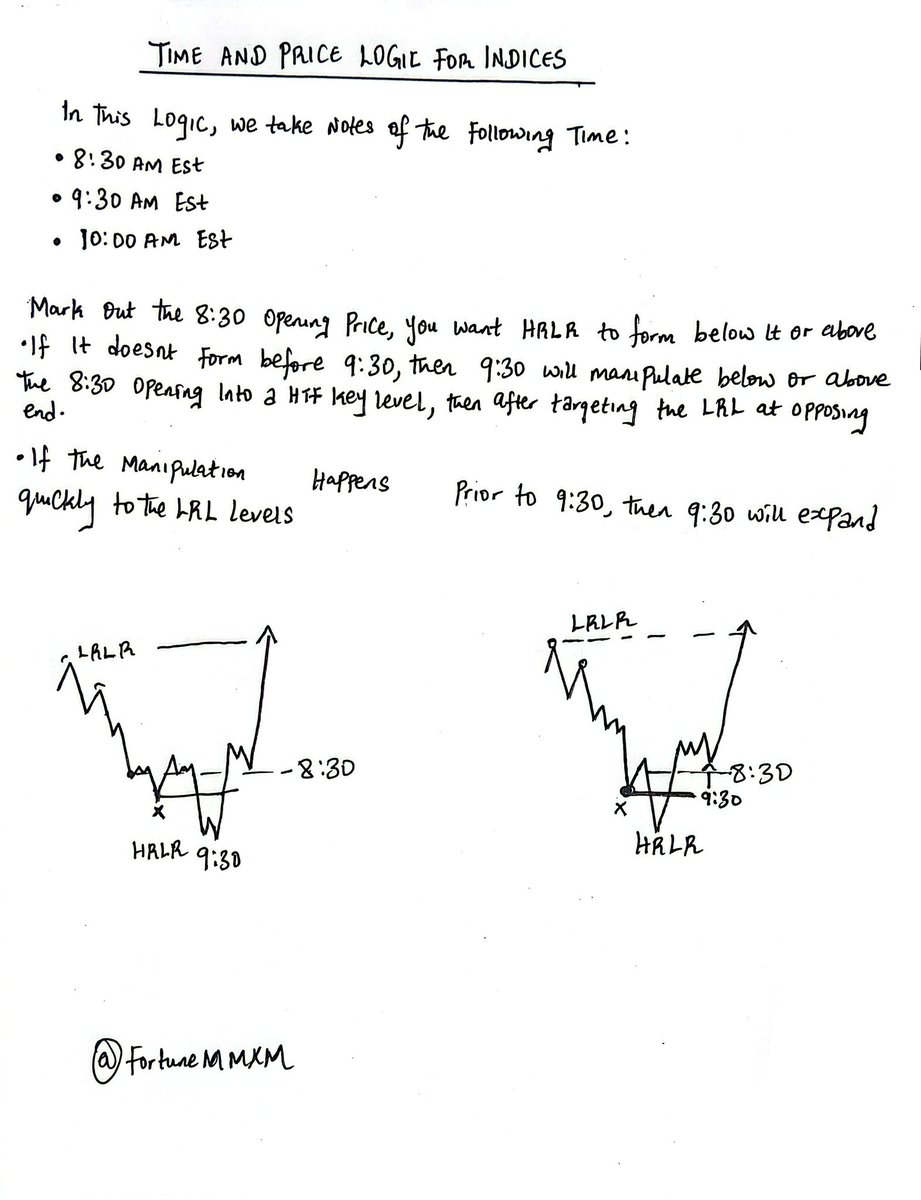 TIME AND PRICE LOGIC FOR INDICES
In This Logic, we take Notes of the Following Time:
• 8:30 AM Est
• 9:30 AM Est
• 10:00 AM Est
Mark Out the 8:30 Opening Price, you want HRLR to form below it or above
• If It doesnt Form before 9:30, then 9:30 will manipulate below or above
the 8:30 Opening Into a HTF key level, then after targeting the LRL at opposing
end.
• If the Manipulation Happens Prior to 9:30, then 9:30 will expand
quickly to the LRL levels
LRLR
8:30
x
HRLR 9:30
LRLR
8:30
9:30
x
HRLR
@FortuneMMXM